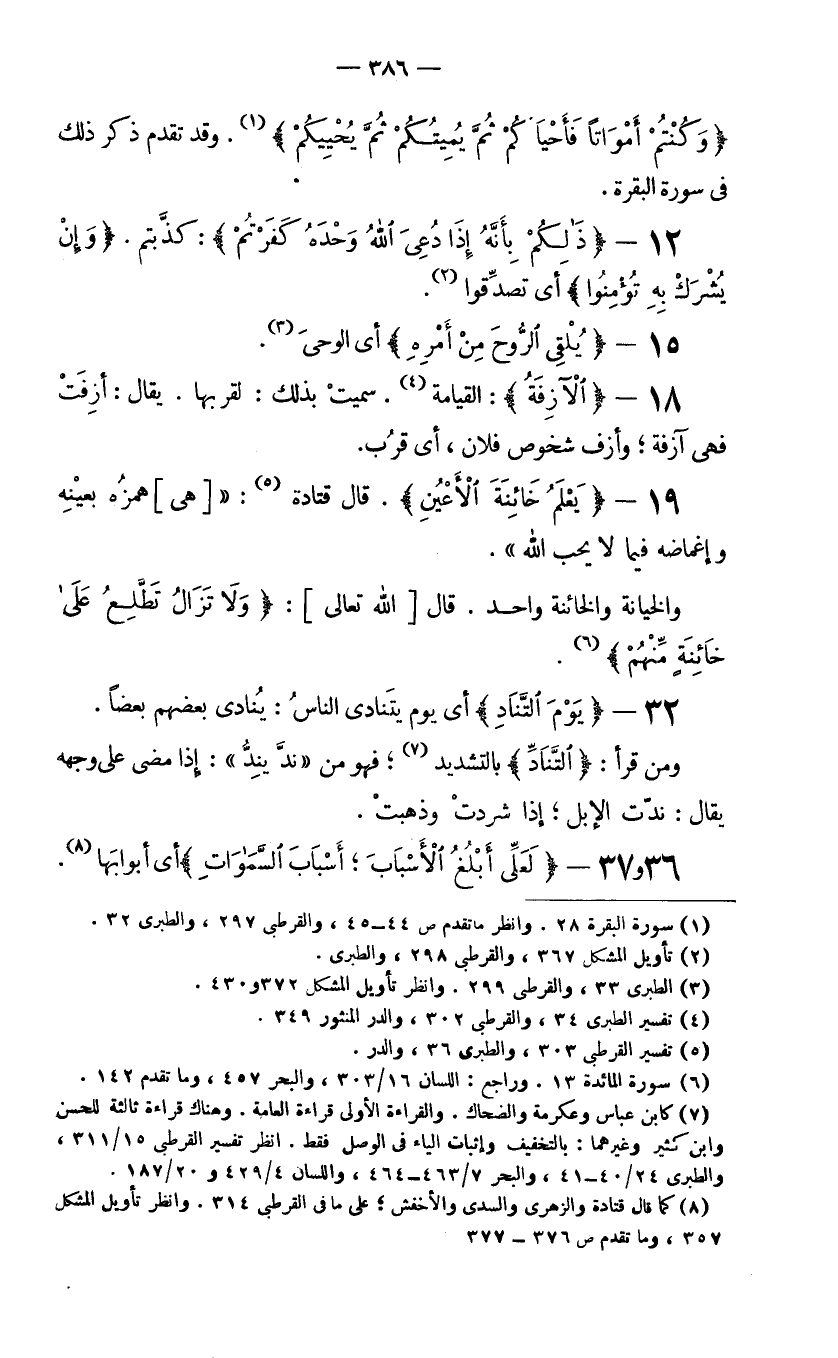 — ٣٨٦ —
﴿ وَكُنْتُمْ أَمْوَاتاً فَأَحْيَاكُمْ ثُمَّ يُمِيتُكُمْ ثُمَّ يُحْيِيكُمْ ﴾ (١) . وقد تقدم ذكر ذلك
فى سورة البقرة .
١٢ — ﴿ ذَٰلِكُمْ بِأَنَّهُ إِذَا دُعِىَ ٱللهُ وَحْدَهُ كَفَرْتُمْ ﴾ : كذَّبتم . ﴿ وَإِنْ
يُشْرَكْ بِهِ تُؤْمِنُوا ﴾ أى تصدِّقوا (٢) .
١٥ — ﴿ يُلْقِى ٱلرُّوحَ مِنْ أَمْرِهِ ﴾ أى الوحىَ (٣) .
١٨ — ﴿ ٱلْآزِفَةُ ﴾ : القيامة (٤) . سميتْ بذلك : لقربها . يقال : أزِفَتْ
فهى آزفة ؛ وأزف شخوص فلان ، أى قرُب.
١٩ — ﴿ يَعْلَمُ خَائِنَةَ ٱلْأَعْيُنِ ﴾ . قال قتادة (٥) : « [ هى ] همزُه بعيْنِه
وإغماضه فيما لا يحب الله » .
والخيانة والخائنة واحد . قال [ الله تعالى ] : ﴿ وَلَا تَزَالُ تَطَّلِعُ عَلَىٰ
خَائِنَةٍ مِّنْهُمْ ﴾ (٦) .
٣٢ — ﴿ يَوْمَ ٱلتَّنَادِ ﴾ أى يوم يتَنادى الناسُ : يُنادى بعضهم بعضاً .
ومن قرأ : ﴿ ٱلتَّنَادِّ ﴾ بالتشديد (٧) ؛ فهو من « ندَّ يندُّ » : إذا مضى على وجهه
يقال : ندّت الإبل ؛ إذا شردتْ وذهبتْ .
٣٦و٣٧ — ﴿ لَعَلِّى أَبْلُغُ ٱلْأَسْبَابَ ؛ أَسْبَابَ ٱلسَّمَٰوَاتِ ﴾ أى أبوابَها (٨) .
(١) سورة البقرة ٢٨ . وانظر ماتقدم ص ٤٤–٤٥ ، والقرطبى ٢٩٧ ، والطبرى ٣٢ .
(٢) تأويل المشكل ٣٦٧ ، والقرطبى ٢٩٨ ، والطبرى .
(٣) الطبرى ٣٣ ، والقرطبى ٢٩٩ . وانظر تأويل المشكل ٣٧٢و٤٣٠ .
(٤) تفسير الطبرى ٣٤ ، والقرطبى ٣٠٢ ، والدر المنثور ٣٤٩ .
(٥) تفسير القرطبى ٣٠٣ ، والطبرى ٣٦ ، والدر .
(٦) سورة المائدة ١٣ . وراجع : اللسان ٣٠٣/١٦ ، والبحر ٤٥٧ ، وما تقدم ١٤٢ .
(٧) كابن عباس وعكرمة والضحاك . والقراءة الأولى قراءة العامة . وهناك قراءة ثالثة للحسن
وابن كثير وغيرهما : بالتخفيف وإثبات الياء فى الوصل فقط . انظر تفسير القرطبى ٣١١/١٥ ،
والطبرى ٤٠/٢٤–٤١ ، والبحر ٤٦٣/٧–٤٦٤ ، واللسان ٤٢٩/٤ و ١٨٧/٢٠ .
(٨) كما قال قتادة والزهرى والسدى والأخفش ؛ على ما فى القرطبى ٣١٤ . وانظر تأويل المشكل
٣٥٧ ، وما تقدم ص ٣٧٦ – ٣٧٧